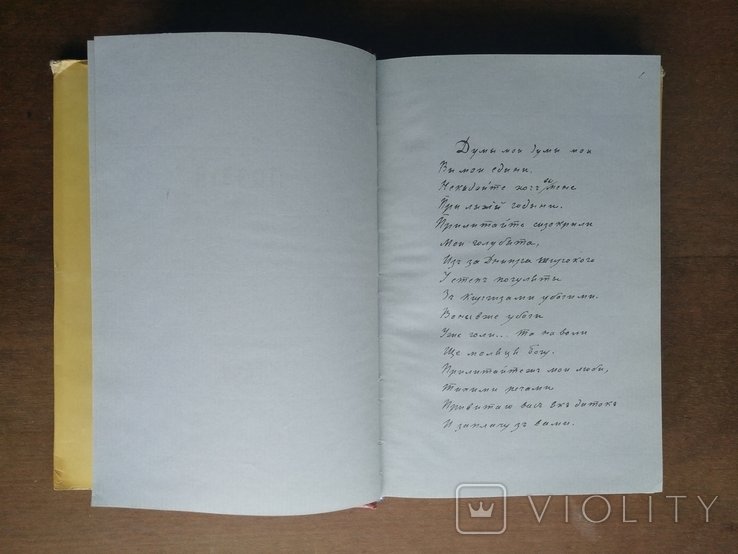 Думы мои думы мои
Вы мои едини.
Некыдайте хочъ вы мене
При лыхій годыни.
Прилитайте сизокрили
Мои голубята,
Изъ за Днипра широкого
У степъ погуляты
Зъ Киргизами убогими.
Вонывже убоги
Уже голи... та на воли
Ще молятця богу.
Прилитайтежъ мои люби,
Тихими речами
Привитаю васъ якъ дитокъ
И заплачу зъ вами.
VIOLITY